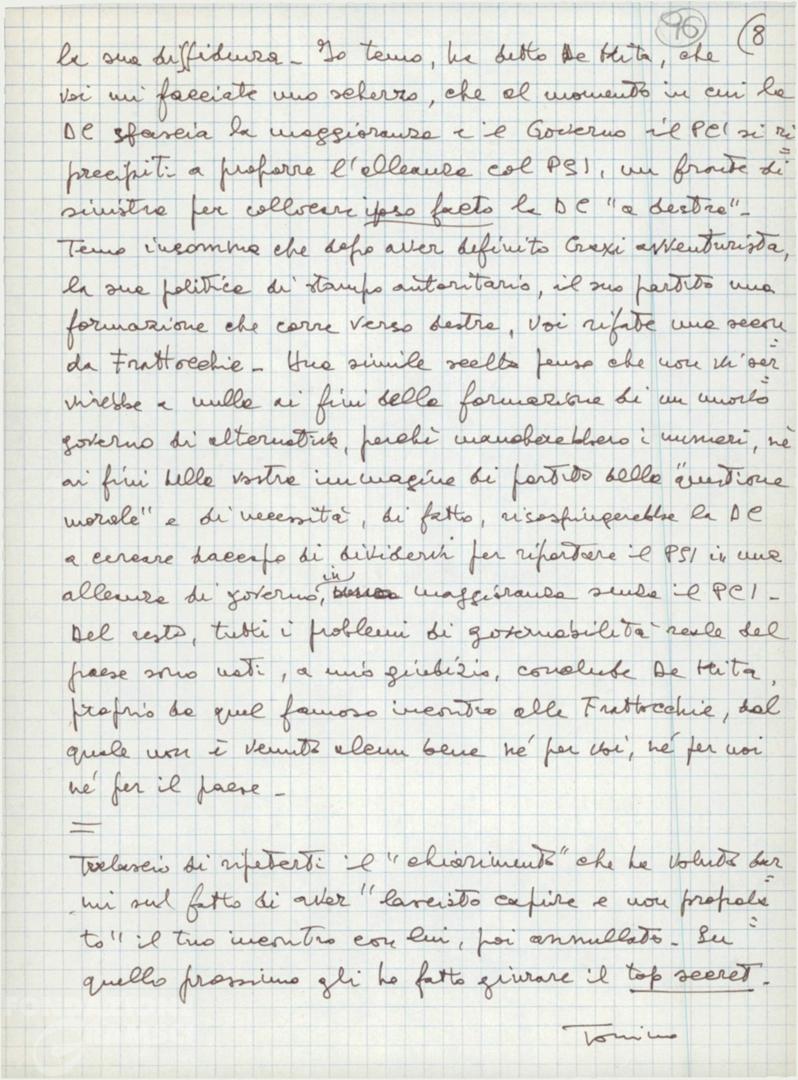 96 (8
la sua diffidenza - Io temo, ha detto De Mita, che
voi mi facciate uno scherzo, che al momento in cui la
DC sfascia la maggioranza e il Governo il PCI si ri
precipiti a proporre l'alleanza col PSI, un fronte di
sinistra per collocare ipso facto la DC "a destra"-
Temo insomma che dopo aver definito Craxi avventurista,
la sua politica di stampo autoritario, il suo partito una
formazione che corre verso destra, voi rifate una secon
da Frattocchie - Una simile scelta penso che non vi ser
virebbe a nulla ai fini della formazione di un nuovo
governo di alternativa, perché mancherebbero i numeri, né
ai fini della vostra immagine di partito della "questione
morale" e di necessità, di fatto, risospingerebbe la DC
a cercare daccapo di dividervi per riportare il PSI in una
alleanza di governo, in maggioranza senza il PCI -
Del resto, tutti i problemi di governabilità reale del
paese sono nati, a mio giudizio, conclude De Mita,
proprio da quel famoso incontro alle Frattocchie, dal
quale non è venuto alcun bene né per voi, né per noi
né per il paese -
=
Tralascio di ripeterti il "chiarimento" che ha voluto dar
mi sul fatto di aver "lasciato capire e non propala
to" il tuo incontro con lui, poi annullato - Su
quello prossimo gli ho fatto giurare il top secret.
Tonino